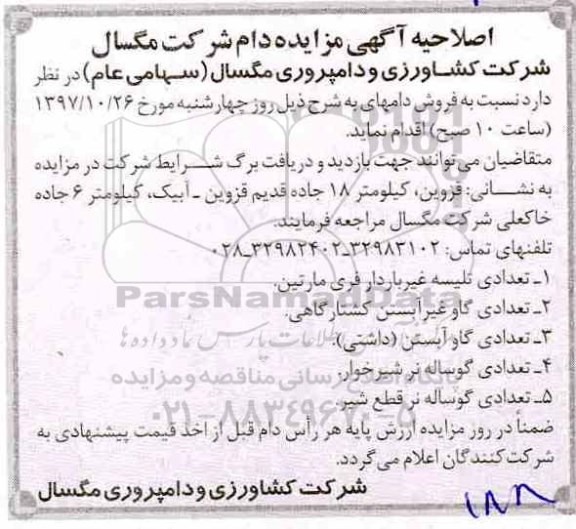 اصلاحیه آگهی مزایده دام شرکت مگسال
شرکت کشاورزی و دامپروری مگسال (سهامی عام) در نظر
دارد نسبت به فروش دامهای به شرح ذیل روز چهارشنبه مورخ ۱۳۹۷/۱۰/۲۶
(ساعت ۱۰ صبح) اقدام نماید.
متقاضیان می توانند جهت بازدید و دریافت برگ شرایط شرکت در مزایده
به نشانی: قزوین، کیلومتر ۱۸ جاده قدیم قزوین ـ آبیک، کیلومتر ۶ جاده
خاکعلی شرکت مگسال مراجعه فرمایند.
تلفنهای تماس: ۳۲۹۸۲۱۰۲ـ۳۲۹۸۲۴۰۲ـ۰۲۸
۱ـ تعدادی تلیسه غیرباردار فری مارتین.
۲ـ تعدادی گاو غیرآبستن کشتارگاهی.
ParsNamadData
۳ـ تعدادی گاو آبستن (داشتی).
۴ـ تعدادی گوساله نر شیرخوار.
پایگاه اطلاع رسانی مناقصه و مزایده
۵ـ تعدادی گوساله نر قطع شیر.
۰۲۱-۸۸۳۴۹۶۷۰-۵
ضمناً در روز مزایده ارزش پایه هر رأس دام قبل از اخذ قیمت پیشنهادی به
شرکت کنندگان اعلام می گردد.
شرکت کشاورزی و دامپروری مگسال
۱۸۸